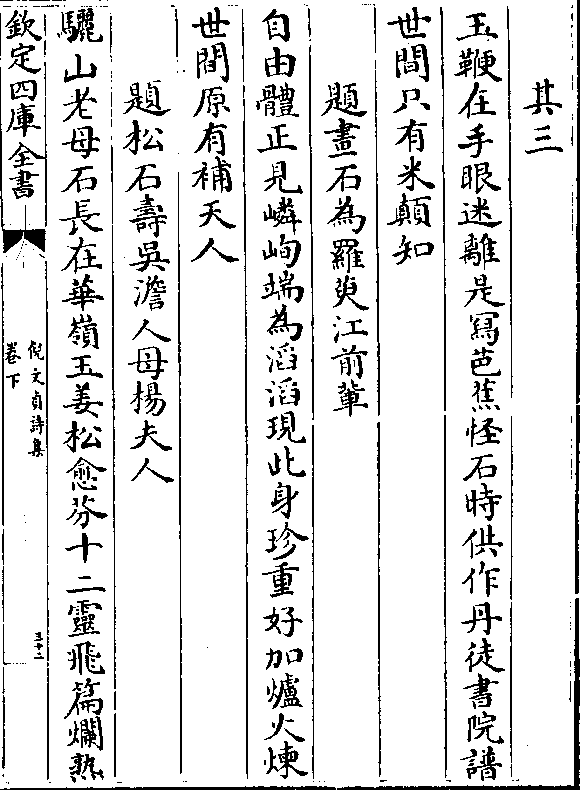 其三
玉鞭在手眼迷離是寫芭蕉怪石時供作丹徒書院譜
世間只有米顛知
題畫石為羅萸江前輩
自由體正見嶙峋端為滔滔現此身珍重好加爐火煉
世間原有補天人
題松石壽吳澹人母楊夫人
驪山老母石長在華嶺玉姜松愈芬十二靈飛篇爛熟
欽定四庫全書
倪文貞詩集
卷下
三十二